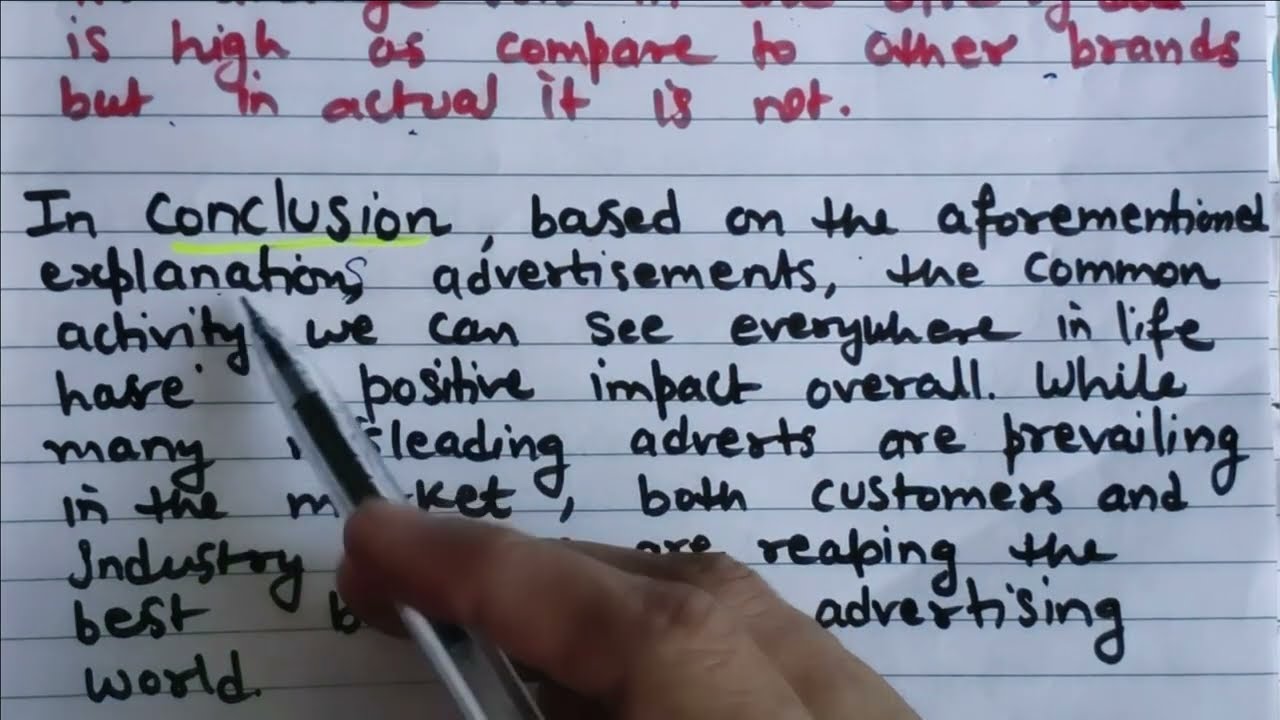 is high as compare to other brands
but in actual it is not.
In conclusion, based on the aforementioned
explanations advertisements, the common
activity we can see everywhere in life
have positive impact overall. While
many leading adverts are prevailing
in the market, both customers and
Industry are reaping the
best advertising
world.